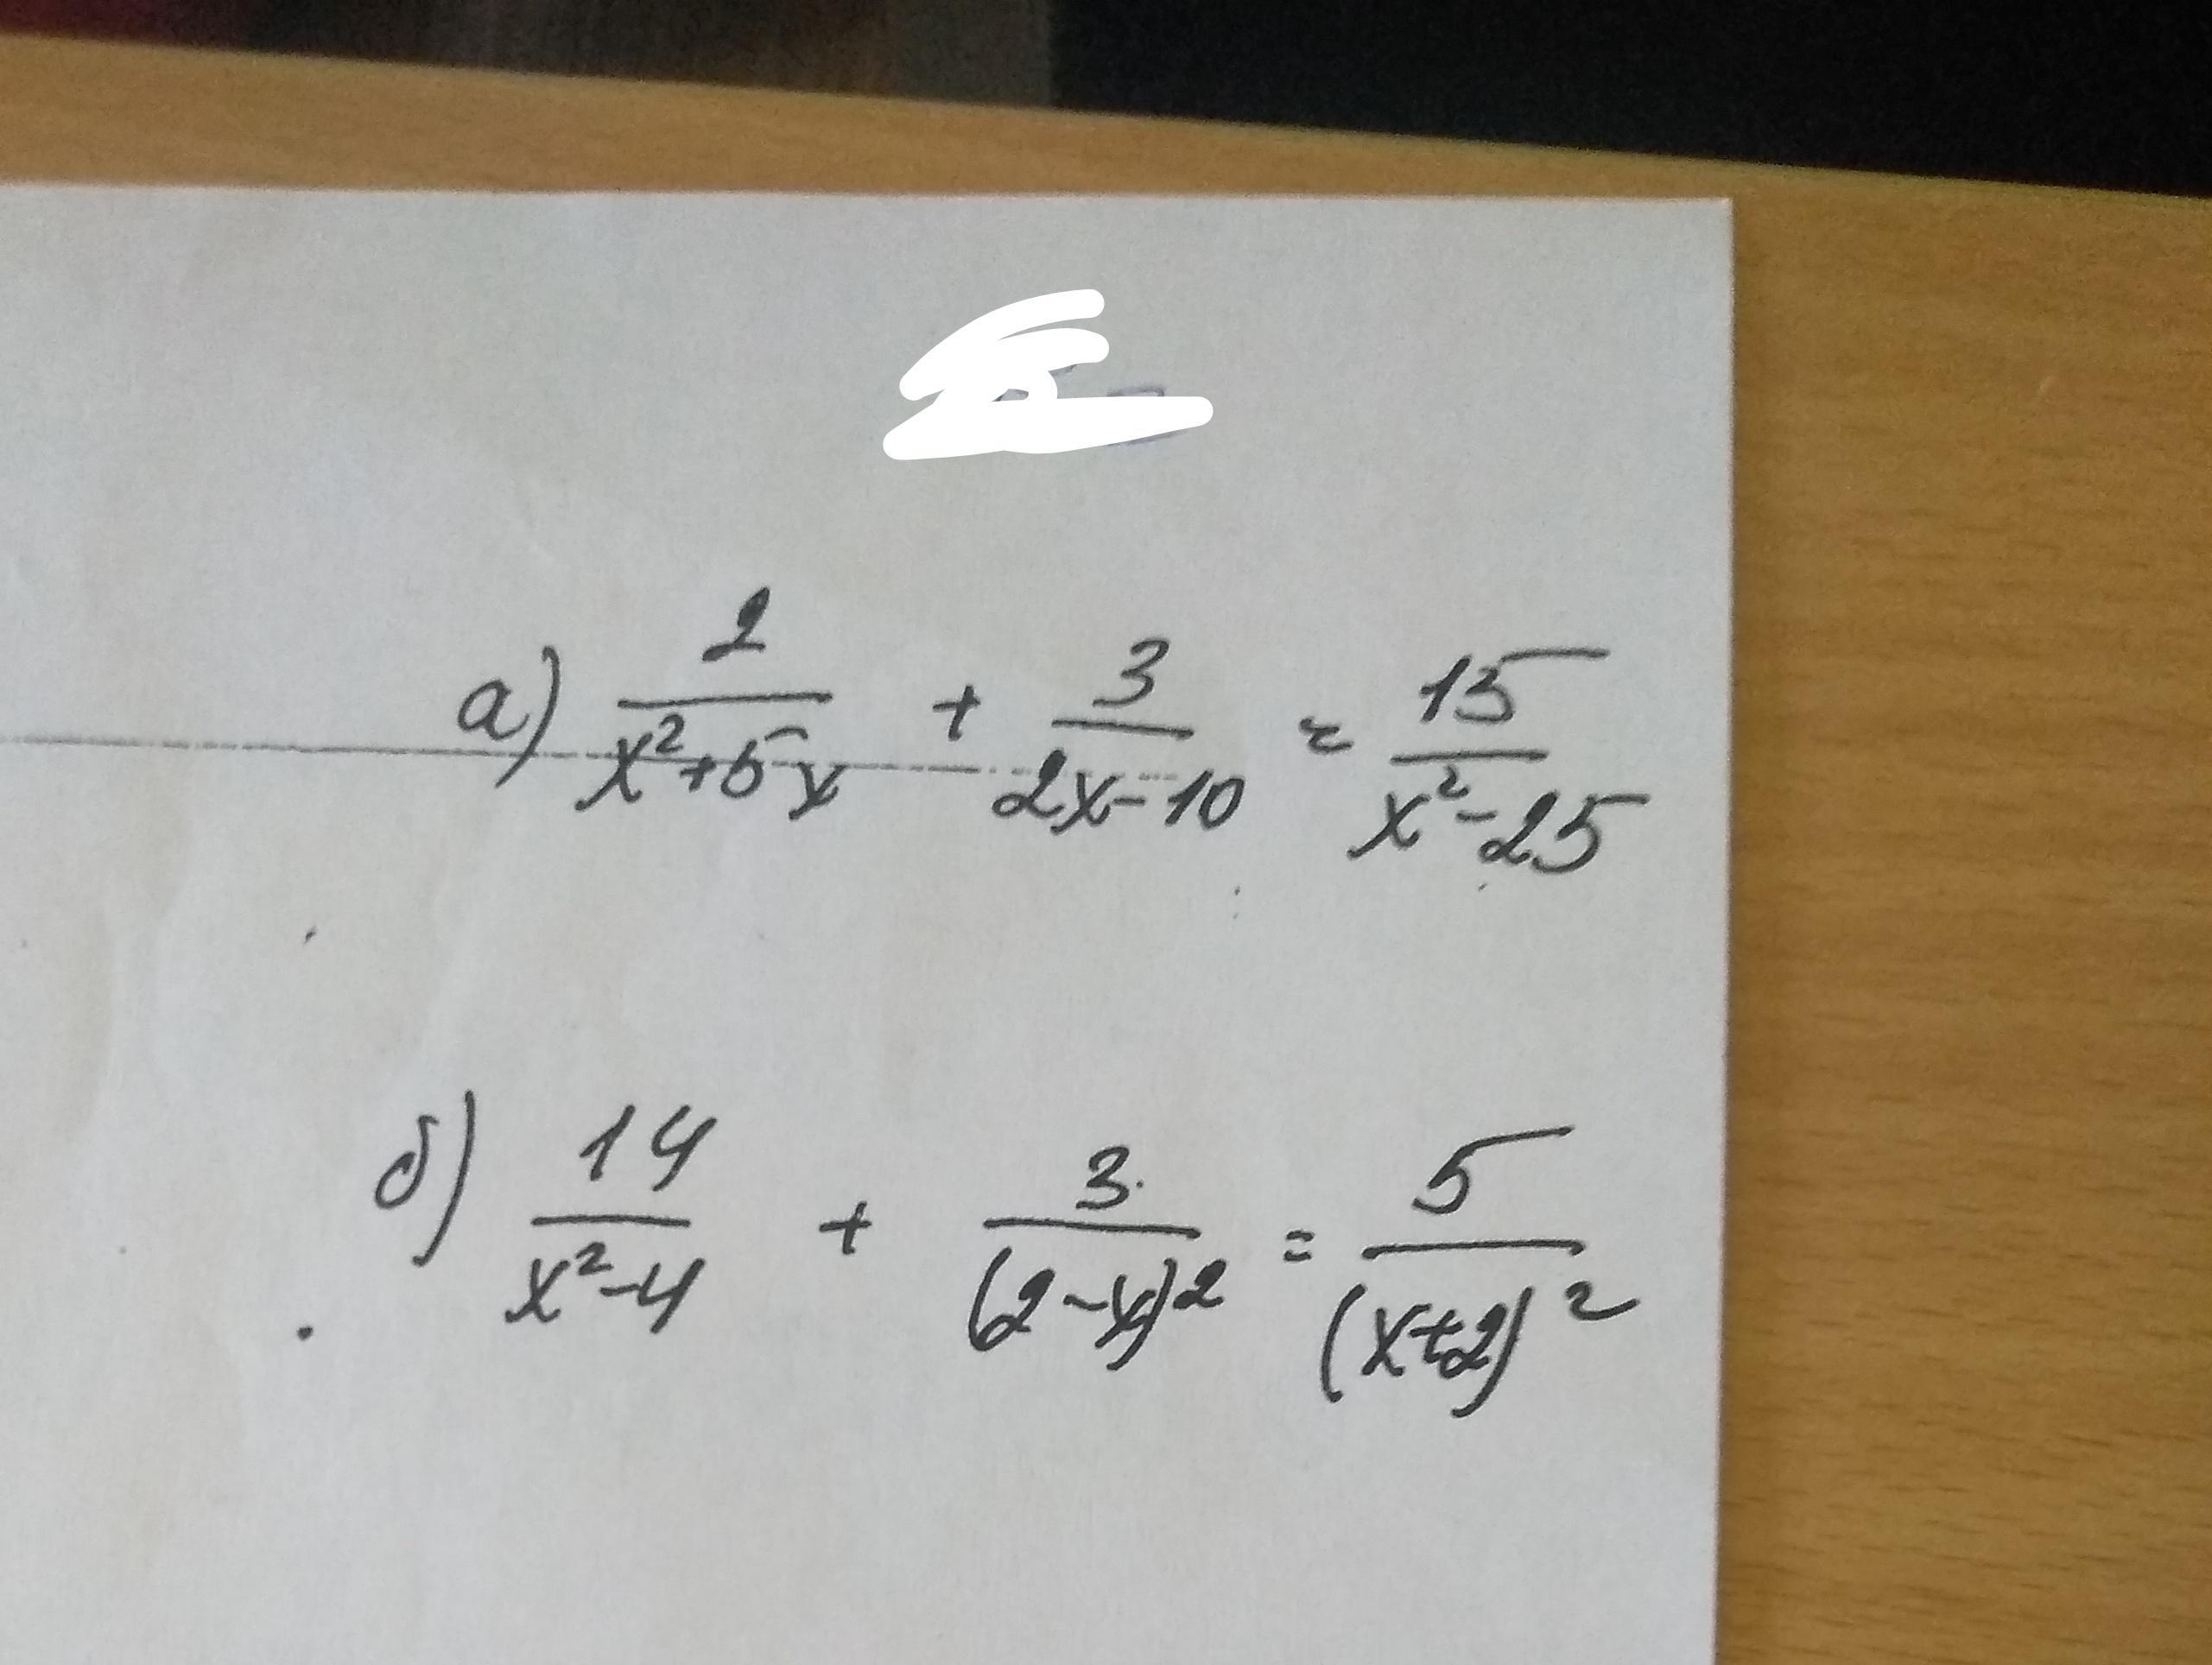 а) 2/(x²+5x) + 3/(2x-10) = 15/(x²-25)
б) 14/(x²-4) + 3/(2-x)² = 5/(x+2)²